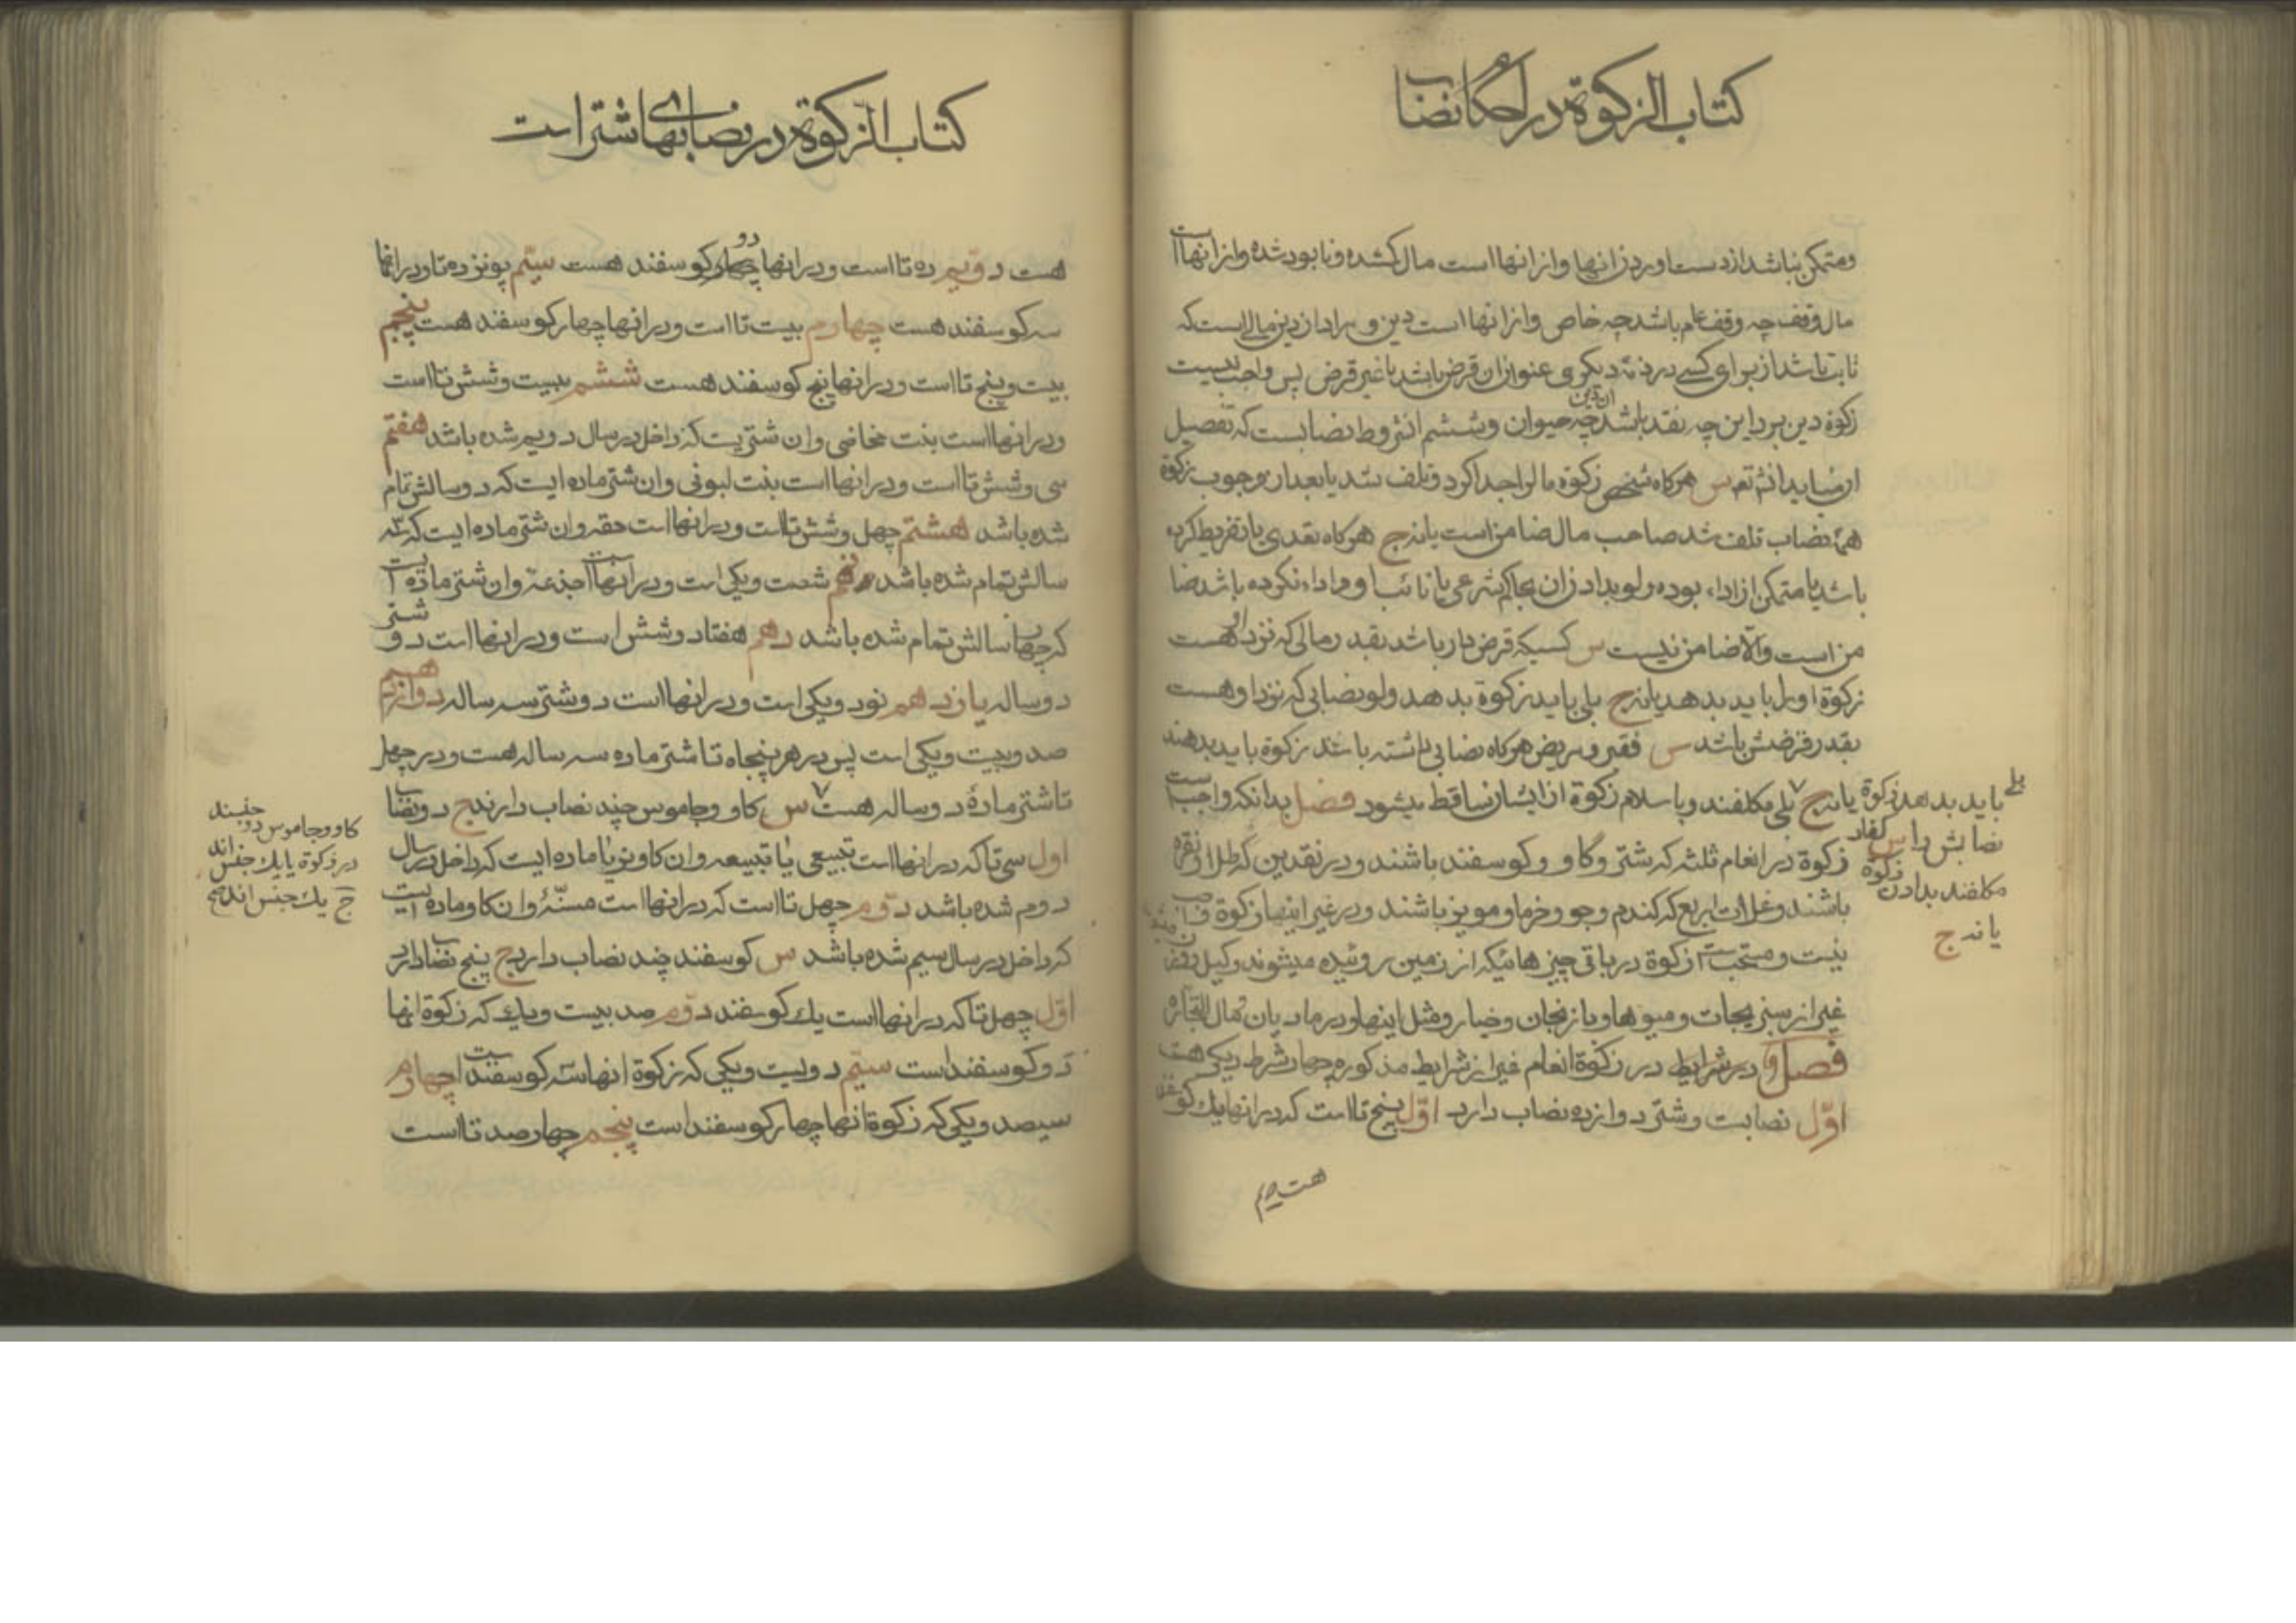 کتاب الزکوة در احکام نصاب
ومتمکن نباشد از دست اوردن انها وازانها است مال کمشده ونابود شده وازانها است
مال وقف چه وقف عام باشد چه خاص وازانها است دین ومراد از دین مالی است که
ثابت باشد از برای کسی در ذمّه دیکری عنوان ان قرض باشد یا غیر قرض پس واجب نیست
زکوة دین بر داین چه نقد باشد ان دین چه حیوان وششم از شروط نصابست که تفصیل
ان میاید انشاءالله تعالی س هرکاه شخص زکوة مال را جدا کرد وتلف شد یا بعد از وجوب زکوة
همه نصاب تلف شد صاحب مال ضامن است یا نه ج هرکاه تعدی یا تفریط کرده
باشد یا متمکن از اداء بوده ولو بدادن ان بحاکم شرعی یا نائب او واداء نکرده باشد ضا
من است والّا ضامن نیست س کسیکه قرض دار باشد بقدر مالی که نزد او هست
زکوة اورا باید بدهد یا نه ج بلی باید زکوة بدهد ولو نصابی که نزد او هست
بقدر قرضش باشد س فقیر ومریض هرکاه نصابی داشته باشد زکوة باید بدهند
یا نه ج بلی مکلفند وباسلام زکوة از ایشان ساقط میشود فصل بدانکه واجب است
زکوة در انعام ثلثه که شتر وکاو وکوسفند باشند ودر نقدین که طلا ونقره
باشند وغلات اربع که کندم وجو وخرما ومویز باشند ودر غیر اینها زکوة واجب
نیست ومستحب است زکوة در باقی چیزهائیکه از زمین روئیده میشوند وکیل ووزن میشوند
غیر از سبزیجات ومیوها وبادنجان وخیار ومثل اینها ودر مادیان ومال التجاره
فصل و در شرایط در زکوة انعام غیر از شرایط مذکوره چهار شرط دیکر هست
اوّل نصابست وشتر دوازده نصاب دارد اوّل پنج تا است که در انها یک کوسفند
هست دویم
بلی باید بدهد زکوة
نصابش را س کفار
مکلفند بدادن زکوة
یا نه ج
کتاب الزکوة در نصابهای شتر است
هست دویم ده تا است ودر انها دو کوسفند هست سیّم پونزده تا ودر انها
سه کوسفند هست چهارم بیست تا است ودر انها چهار کوسفند هست پنجم
بیست وپنج تا است ودر انها پنج کوسفند هست ششم بیست وشش تا است
ودر انها است بنت مخاضی وان شتریست که داخل در سال دویم شده باشد هفتم
سی وشش تا است ودر انها است بنت لبونی وان شتر ماده ایست که دو سالش تمام
شده باشد هشتم چهل وشش تا است ودر انها است حقه وان شتر ماده ایست که سه
سالش تمام شده باشد نهم شصت ویکی است ودر انها است جذعه وان شتر ماده است
که چهار سالش تمام شده باشد دهم هفتاد وشش است ودر انها است دو شتر
دو ساله یازدهم نود ویکی است ودر انها است دو شتر سه ساله دوازدهم
صد وبیست ویکی است پس در هر پنجاه تا شتر ماده سه ساله هست ودر چهل
تا شتر مادهٔ دو ساله هست س کاو وجاموس چند نصاب دارند ج دو نصاب
اول سی تا که در انها است تبیعی یا تبیعه وان کاو نر یا ماده ایست که داخل در سال
دوم شده باشد دوّم چهل تا است که در انها است مسنّهٔ وان کاو ماده ایست
که داخل در سال سیم شده باشد س کوسفند چند نصاب دارد ج پنج نصاب دارد
اوّل چهل تا که در انها است یک کوسفند دوّم صد بیست ویک که زکوة انها
دو کوسفند است سیّم دویست ویکی که زکوة انها سه کوسفند است چهارم
سیصد ویکی که زکوة انها چهار کوسفند است پنجم چهارصد تا است
کاو وجاموس دو جنسند
در زکوة یا یک جنس اند
ج یک جنس اند صح